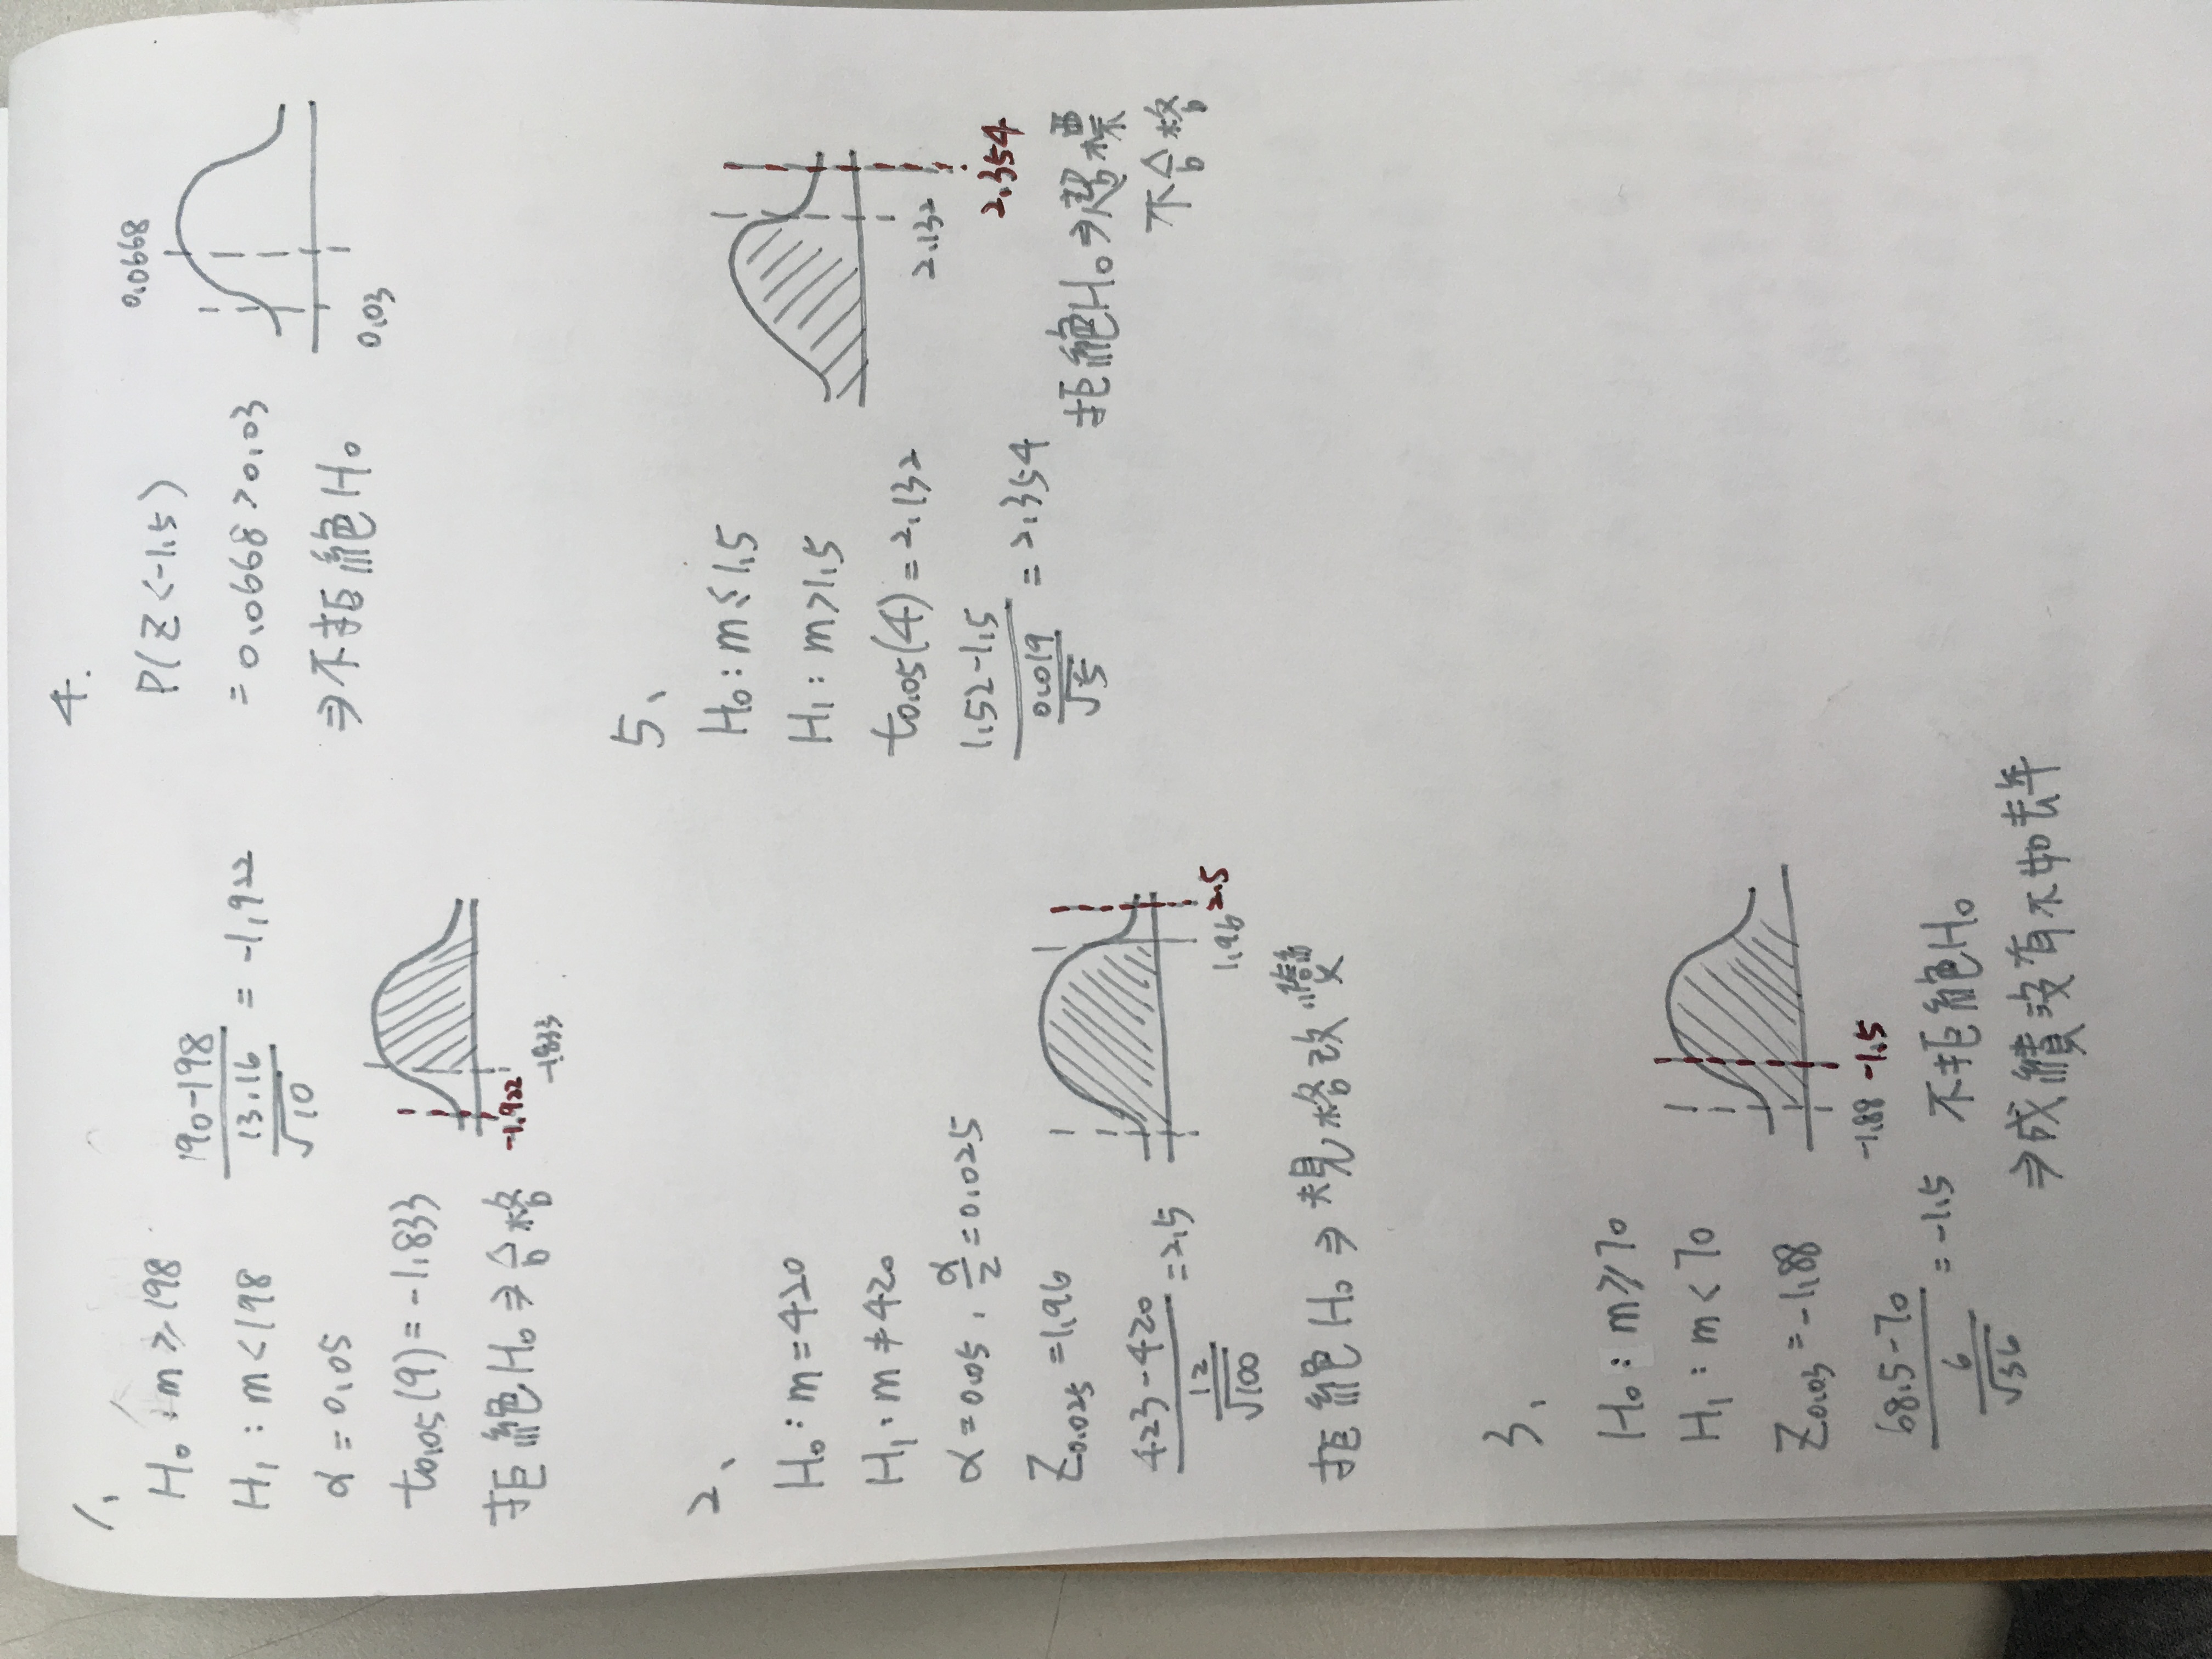 1、
H₀：m≥198
H₁：m<198
(190-198)/(13.16/√10) = -1.922
α=0.05
t₀.₀₅(9)=-1.833
拒絕H₀⇒合格
-1.922
-1.833
2、
H₀：m=420
H₁：m≠420
α=0.05，α/2=0.025
Z₀.₀₂₅=1.96
(423-420)/(12/√100)=2.5
1.96
2.5
拒絕H₀⇒規格改變
3、
H₀：m≥70
H₁：m<70
Z₀.₀₃=-1.88
-1.88
-1.5
(68.5-70)/(6/√36)=-1.5
不拒絕H₀
⇒成績沒有不如去年
4.
P(Z<-1.5)
=0.0668>0.03
⇒不拒絕H₀
0.0668
0.03
5、
H₀：m≤1.5
H₁：m>1.5
t₀.₀₅(4)=2.132
(1.52-1.5)/(0.019/√5)=2.354
2.132
2.354
拒絕H₀⇒超標
不合格